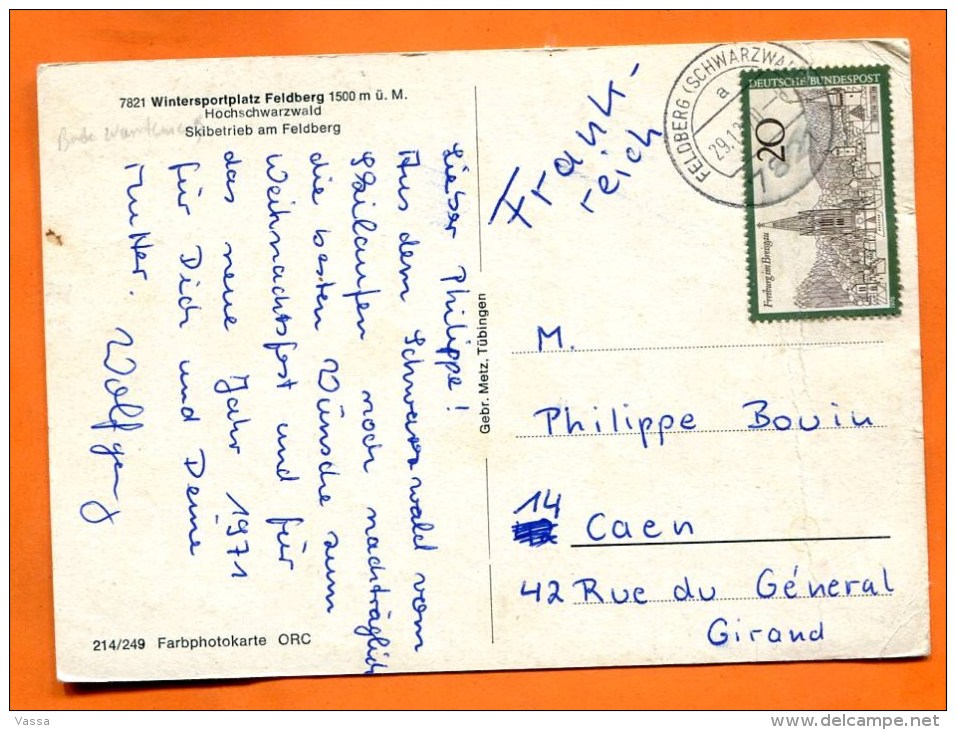 7821 Wintersportplatz Feldberg 1500 m ü. M.
Hochschwarzwald
Skibetrieb am Feldberg
Lieber Philippe!
Aus dem Schwarzwald vom
Skilaufen noch nachträglich
die besten Wünsche zum
Weihnachtsfest und für
das neue Jahr 1971
für Dich und Deine
Mutter.
Wolfgang
214/249 Farbphotokarte ORC
Gebr. Metz, Tübingen
Frank-
reich
FELDBERG (SCHWARZWALD)
a
29.1
DEUTSCHE BUNDESPOST
20
Freiburg im Breisgau
M.
Philippe Bouin
14 Caen
42 Rue du Général
Giraud
Vassa
delcampe.net